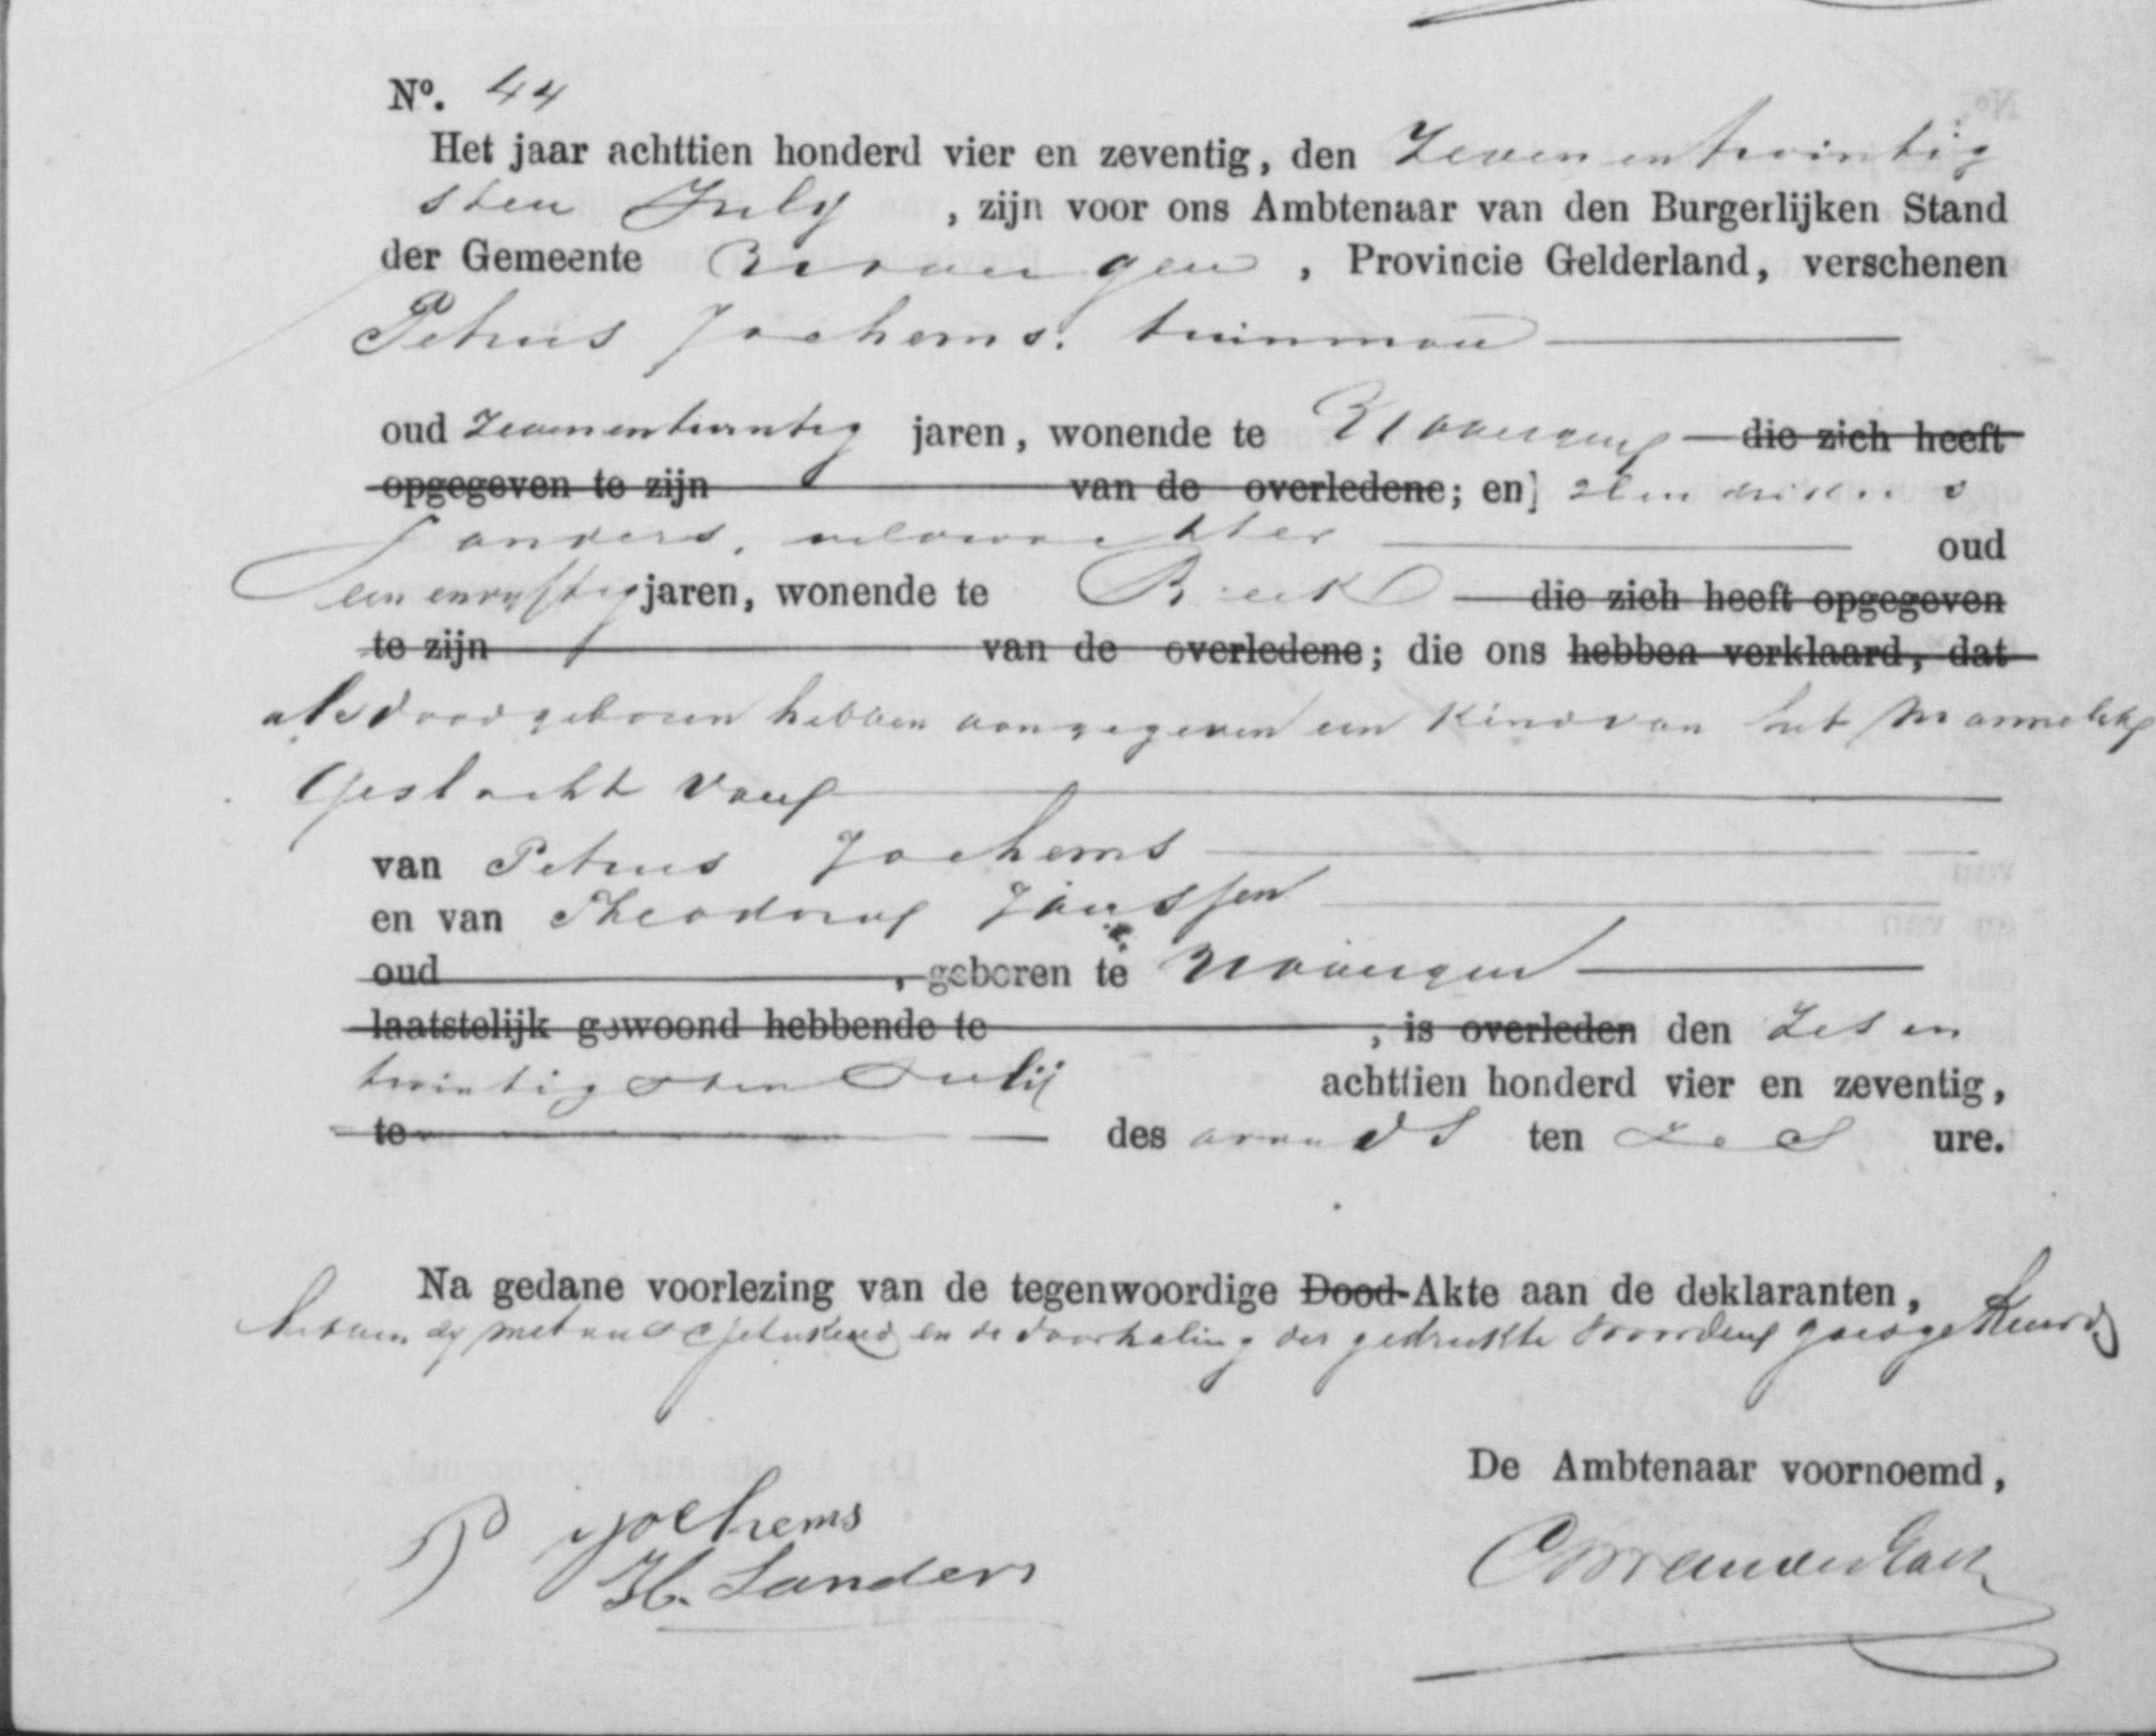 Nº. 44
Het jaar achttien honderd vier en zeventig, den Zeven en twintig
sten July , zijn voor ons Ambtenaar van den Burgerlijken Stand
der Gemeente , Provincie Gelderland, verschenen
Petrus Jochems. tuinman
oud Zevenentwintig jaren, wonende te die zich heeft
opgegeven te zijn van de overledene; en] Hendrikus
Sanders, veldwachter oud
een en vyftig jaren, wonende te Beek die zich heeft opgegeven
te zijn van de overledene; die ons hebben verklaard, dat
als doodgeboren hebben aangegeven een Kind van het Mannelijk
Geslacht van
van Petrus Jochems
en van Theodora Janssen
oud , geboren te
laatstelijk gewoond hebbende te , is overleden den Zes en
twintigsten Julij achttien honderd vier en zeventig,
te des avonds ten zes ure.
Na gedane voorlezing van de tegenwoordige Dood-Akte aan de deklaranten,
hebben zy met ons geteekend en de doorhaling der gedrukte woorden goedgekeurd
De Ambtenaar voornoemd,
P Jochems
H. Sanders